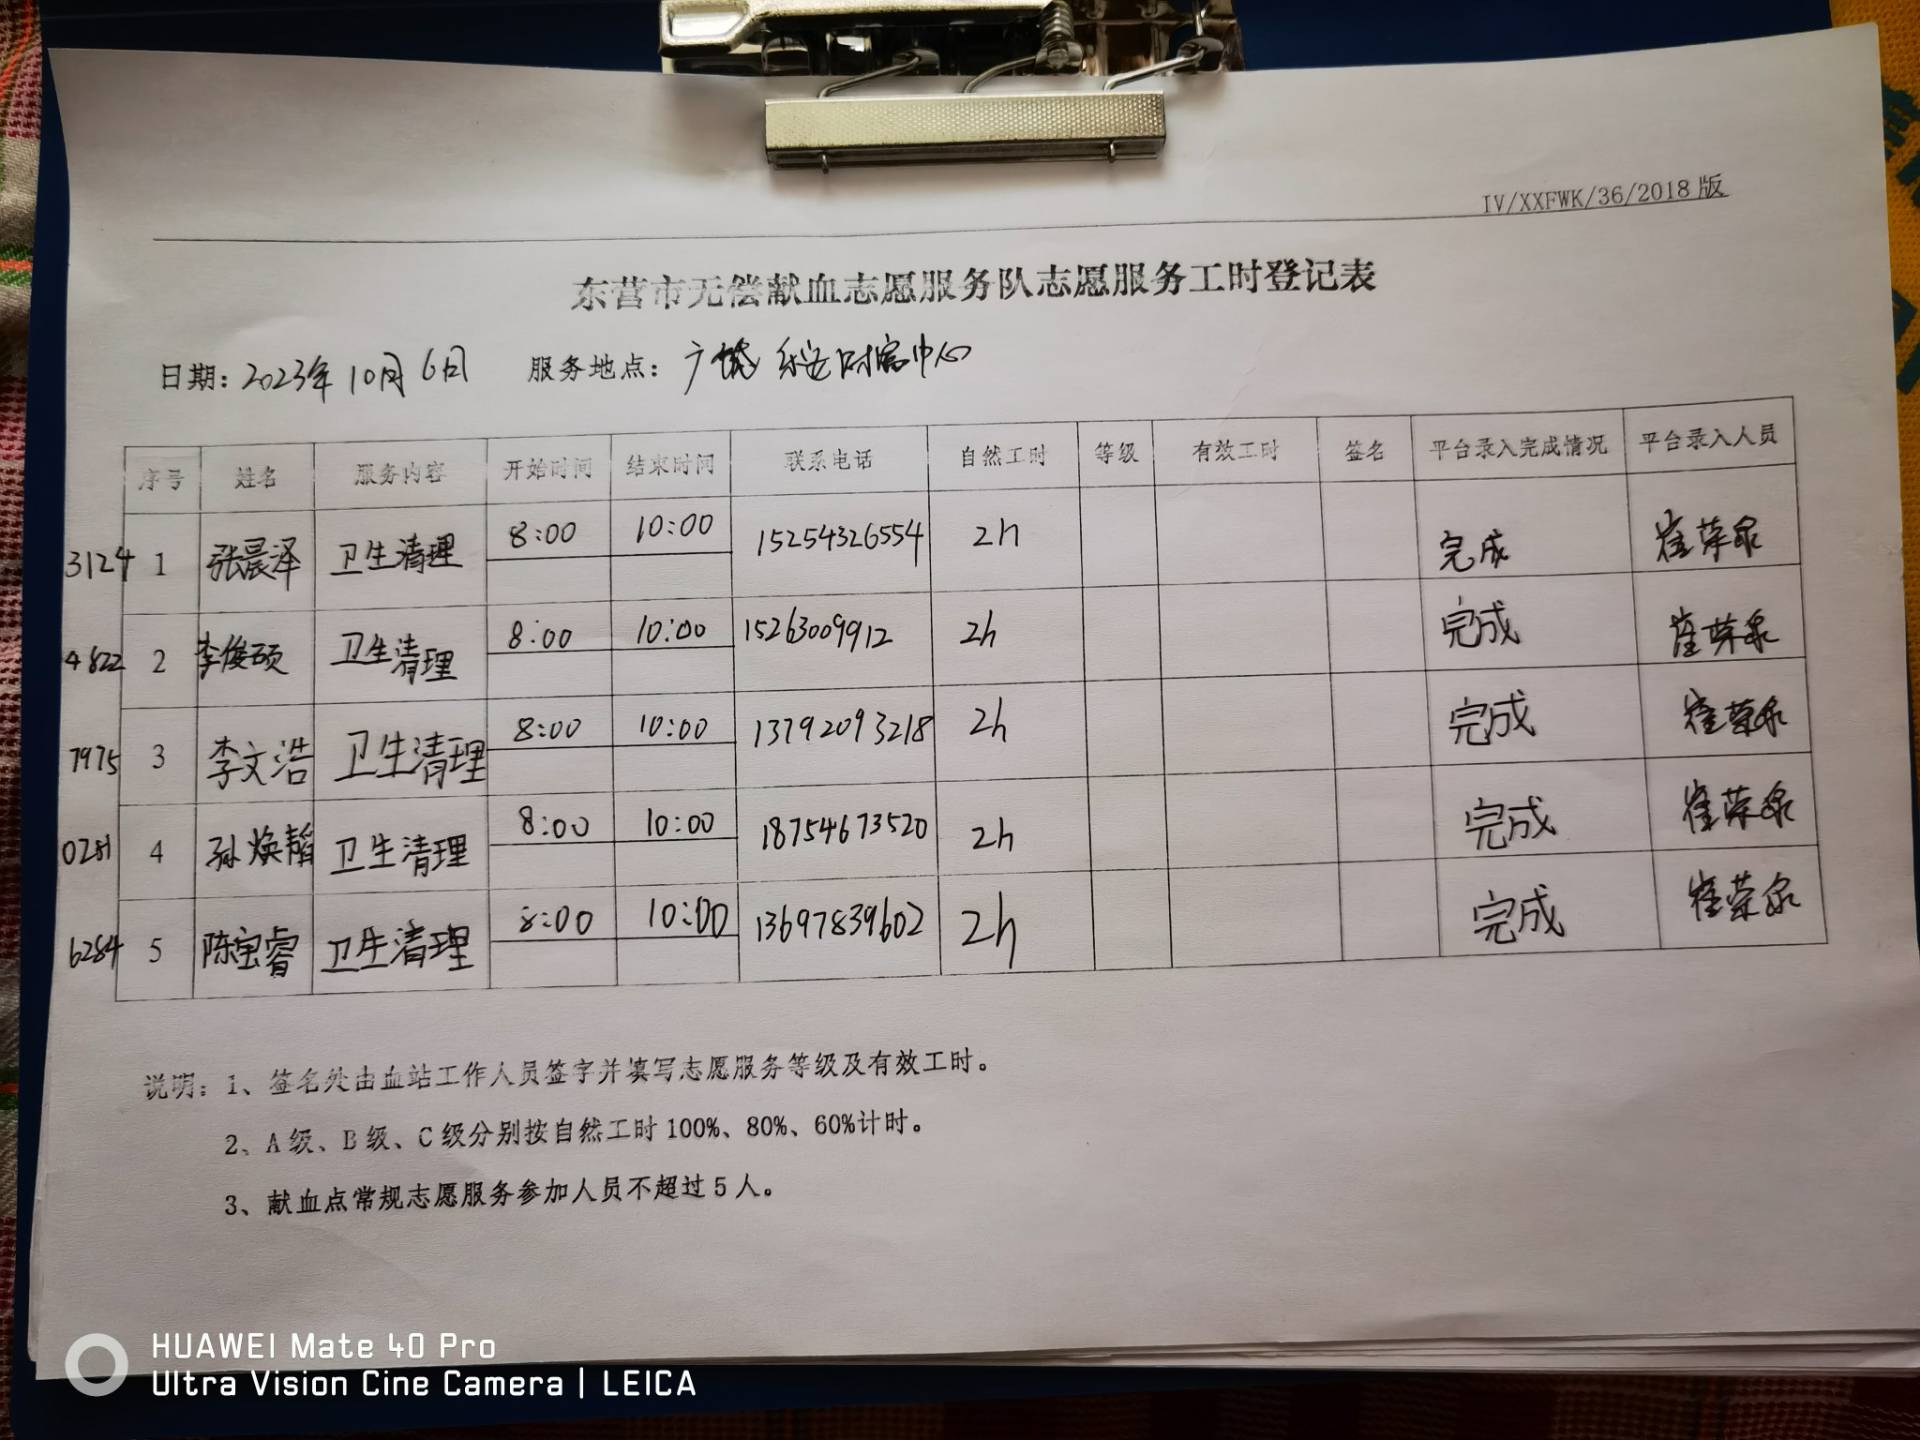 IV/XXFWK/36/2018版
东营市无偿献血志愿服务队志愿服务工时登记表
日期：2023年10月6日 服务地点：广饶 乐安 中心
序号 姓名 服务内容 开始时间 结束时间 联系电话 自然工时 等级 有效工时 签名 平台录入完成情况 平台录入人员
3124 1 张晨泽 卫生清理 8:00 10:00 15254326554 2h 完成 崔荣泉
4822 2 李俊硕 卫生清理 8:00 10:00 15263009912 2h 完成 崔荣泉
7975 3 李文浩 卫生清理 8:00 10:00 13792093218 2h 完成 崔荣泉
0281 4 孙焕韬 卫生清理 8:00 10:00 18754673520 2h 完成 崔荣泉
6284 5 陈宝睿 卫生清理 8:00 10:00 13697839602 2h 完成 崔荣泉
说明：1、签名处由血站工作人员签字并填写志愿服务等级及有效工时。
2、A级、B级、C级分别按自然工时100%、80%、60%计时。
3、献血点常规志愿服务参加人员不超过5人。
HUAWEI Mate 40 Pro
Ultra Vision Cine Camera | LEICA